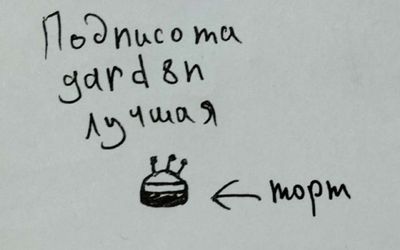 Подписота
gard8n
лучшая
← торт